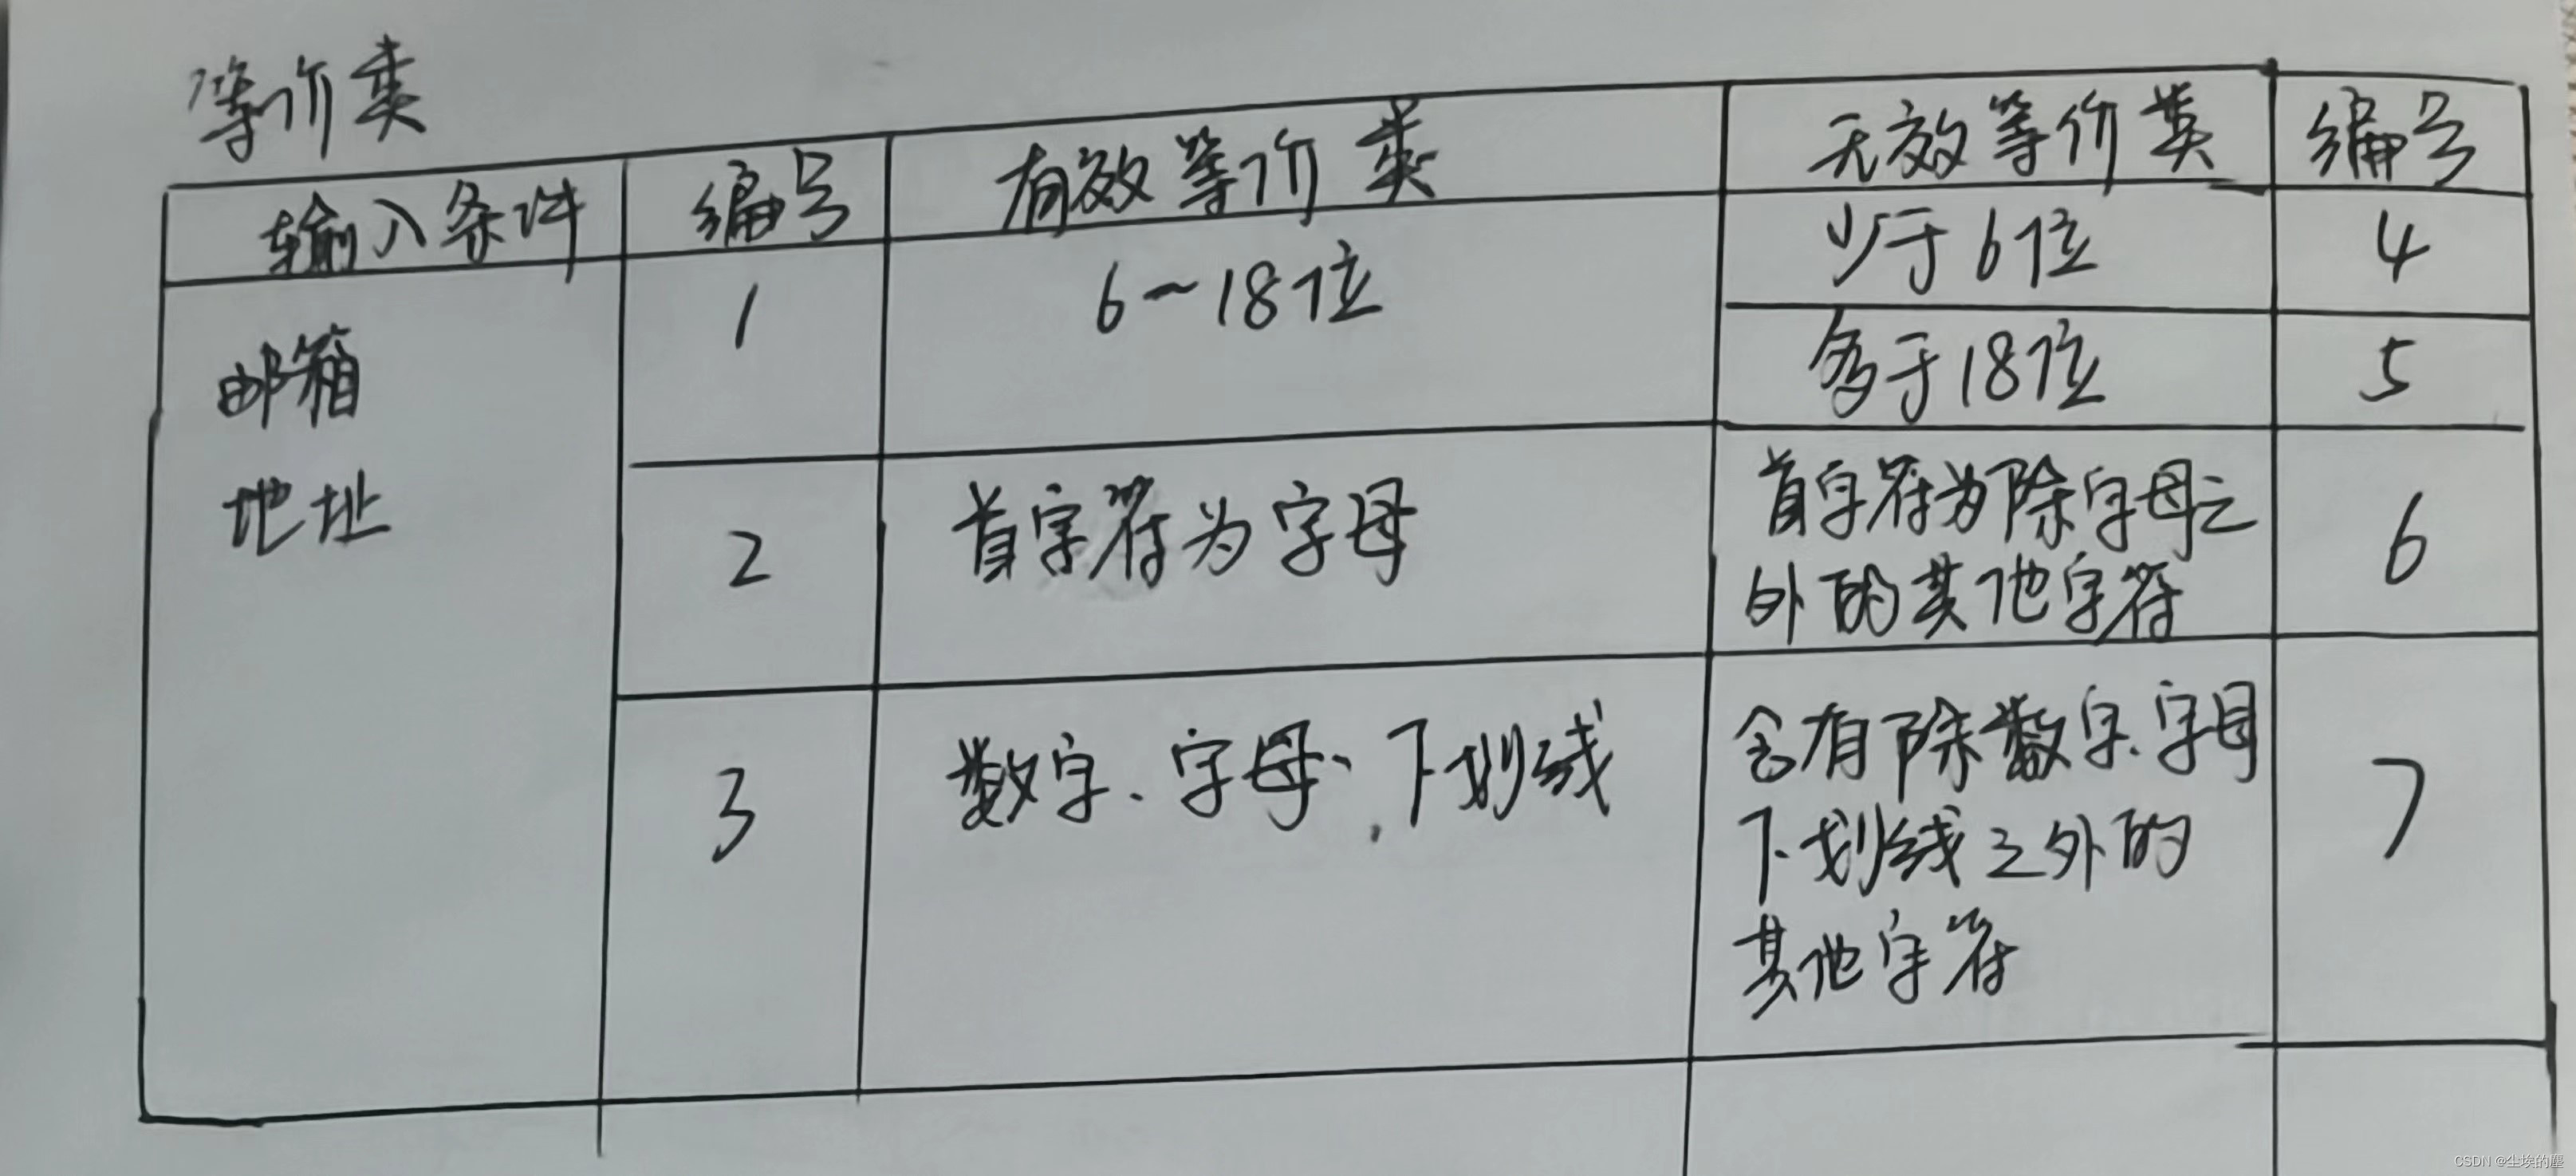 等价类
输入条件 编号 有效等价类 无效等价类 编号
邮箱
地址
1 6~18位 少于6位 4
多于18位 5
2 首字符为字母 首字符为除字母之
外的其他字符 6
3 数字、字母、下划线 含有除数字、字母
下划线之外的
其他字符 7
CSDN @尘埃的塵